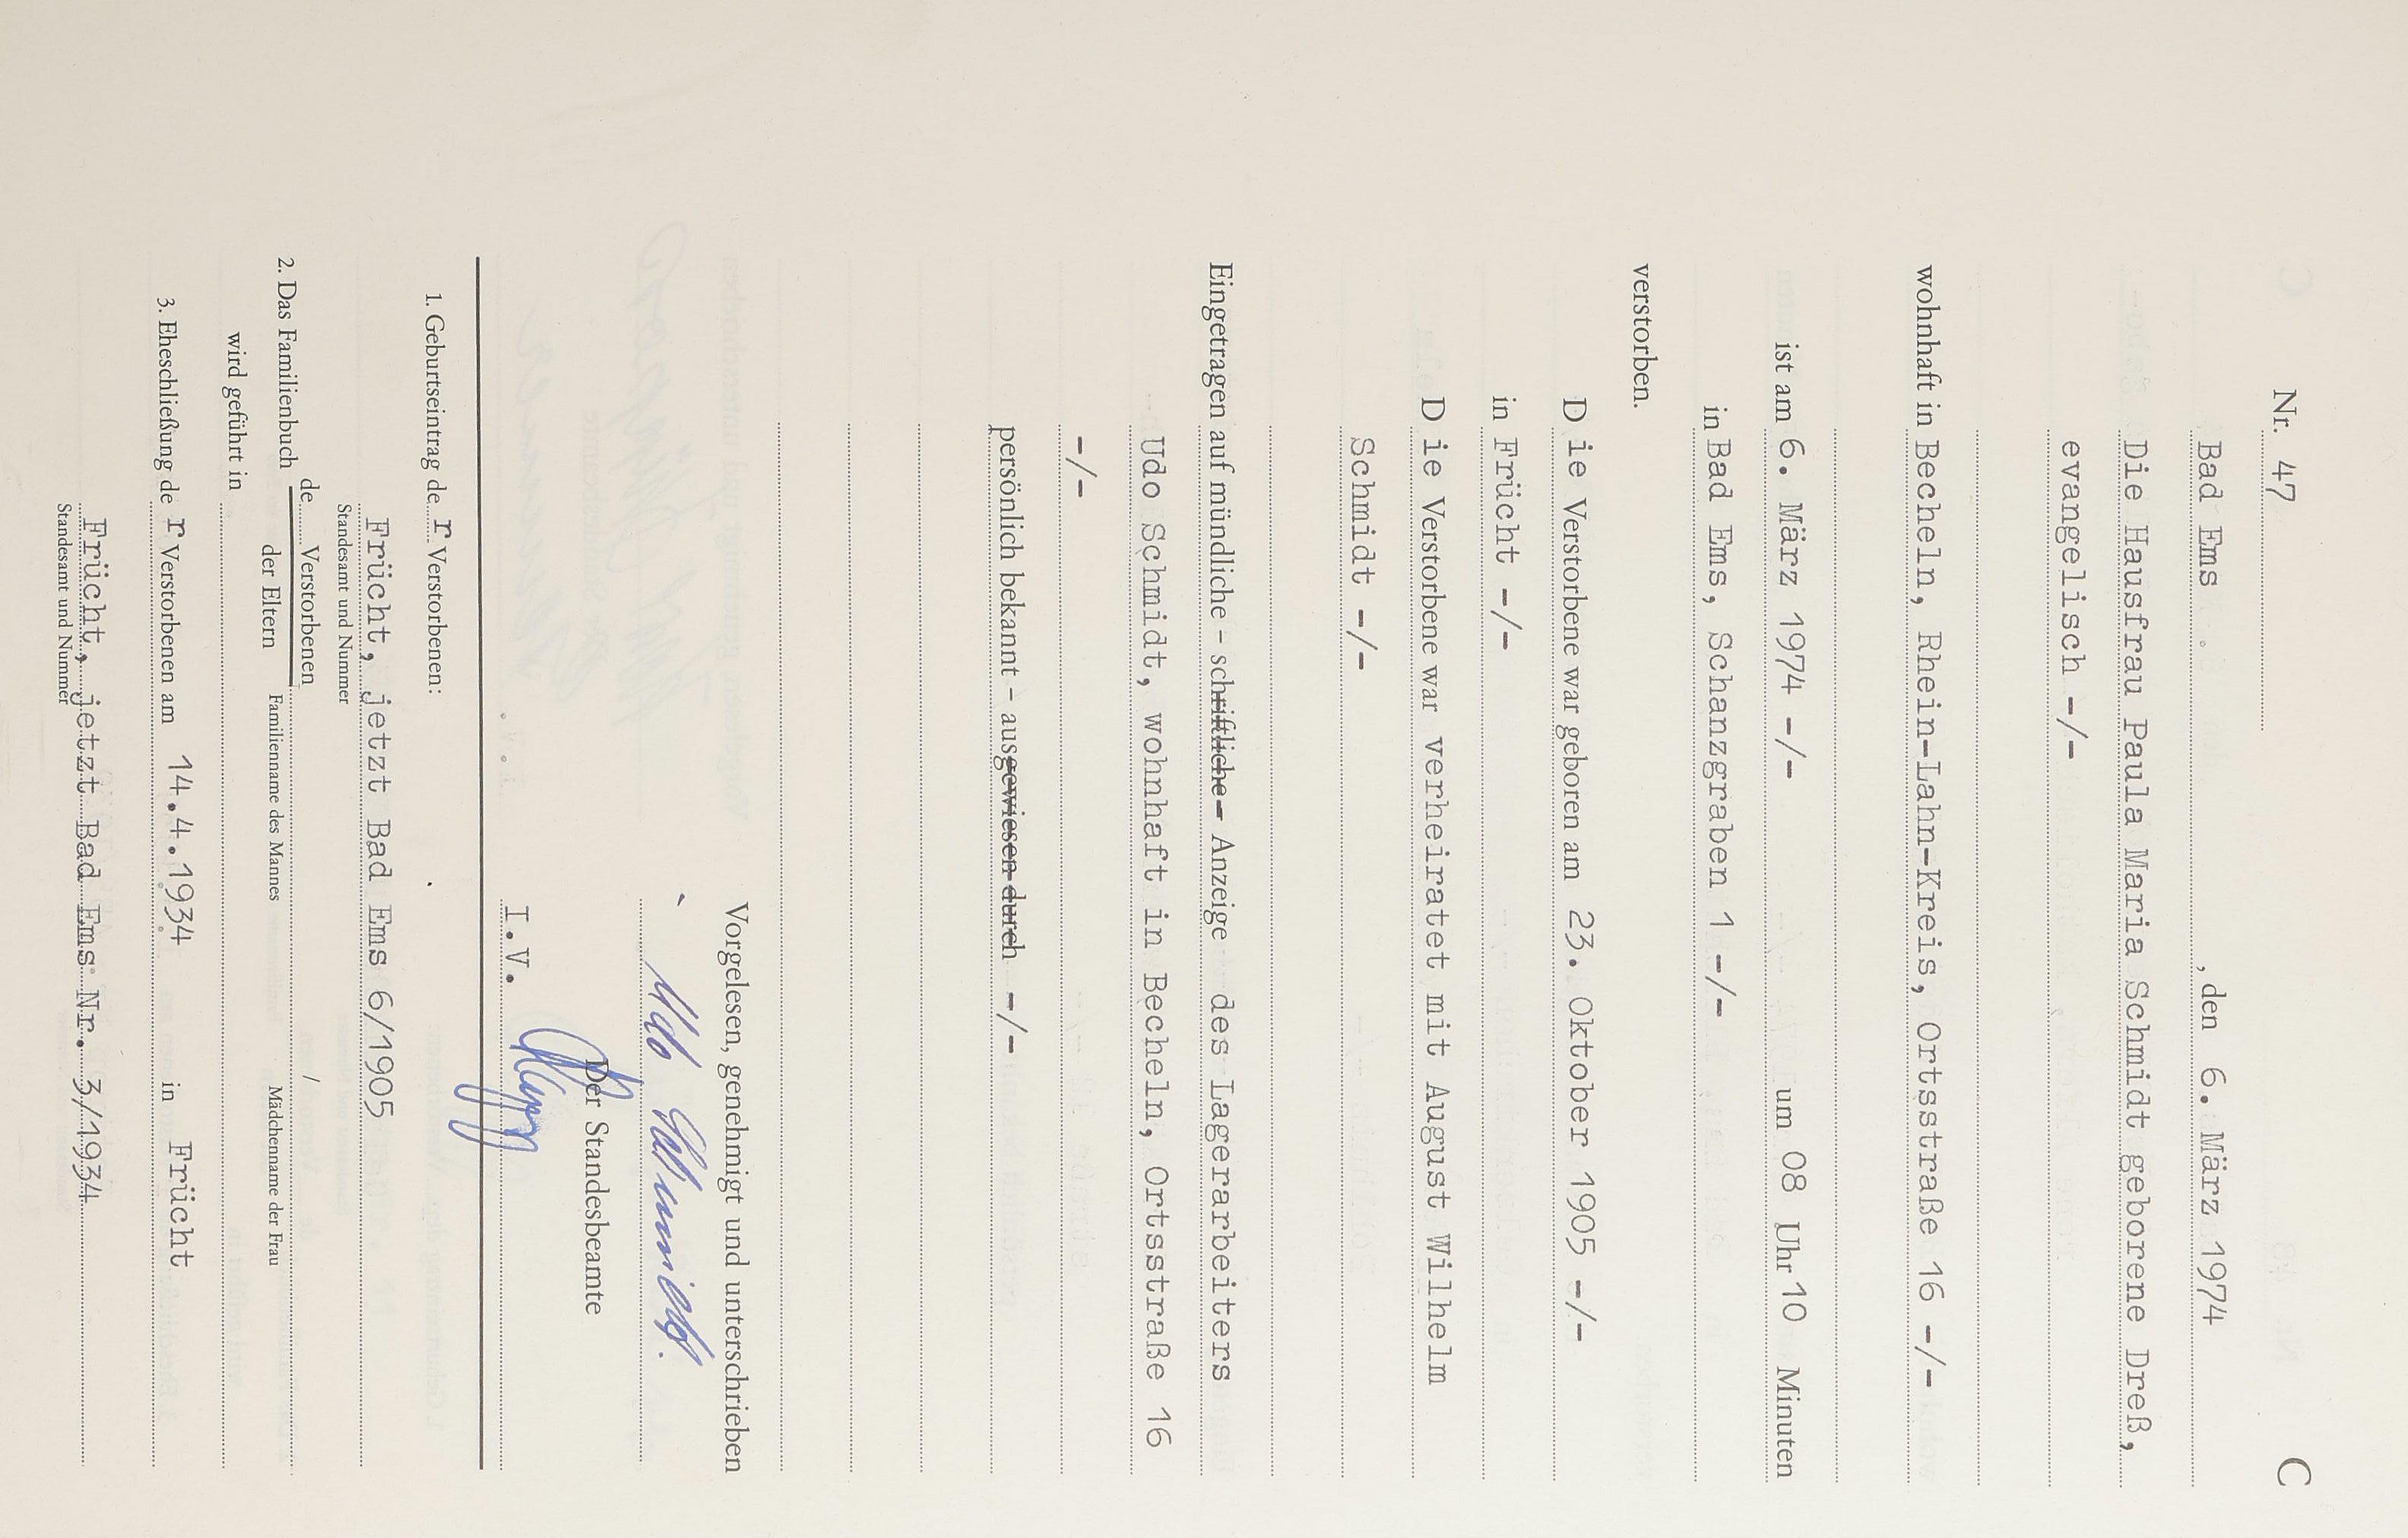 Nr. 47 C
Bad Ems , den 6. März 1974
Die Hausfrau Paula Maria Schmidt geborene Dreß,
evangelisch -/-
wohnhaft in Becheln, Rhein-Lahn-Kreis, Ortsstraße 16 -/-
ist am 6. März 1974 -/- um 08 Uhr 10 Minuten
in Bad Ems, Schanzgraben 1 -/-
verstorben.
D ie Verstorbene war geboren am 23. Oktober 1905 -/-
in Frücht -/-
D ie Verstorbene war verheiratet mit August Wilhelm
Schmidt -/-
Eingetragen auf mündliche - schriftliche - Anzeige des Lagerarbeiters
Udo Schmidt, wohnhaft in Becheln, Ortsstraße 16
-/-
persönlich bekannt - ausgewiesen durch -/-
Vorgelesen, genehmigt und unterschrieben
Udo Schmidt.
Der Standesbeamte
I.V.
1. Geburtseintrag de r Verstorbenen:
Frücht, jetzt Bad Ems 6/1905
Standesamt und Nummer
2. Das Familienbuch de Verstorbenen /
der Eltern Familienname des Mannes Mädchenname der Frau
wird geführt in
3. Eheschließung de r Verstorbenen am 14.4.1934 in Frücht
Frücht, jetzt Bad Ems Nr. 3/1934
Standesamt und Nummer